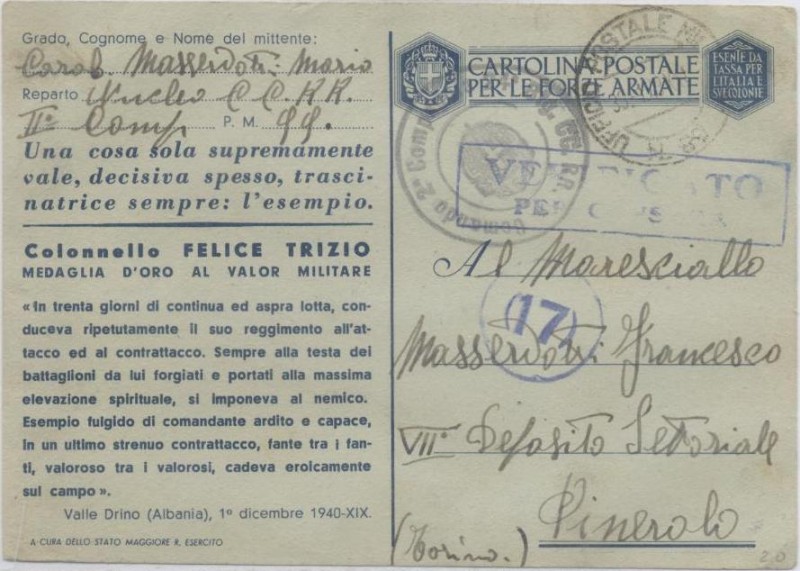 Grado, Cognome e Nome del mittente:
Carab. Masserdotti Mario
Reparto Nucleo CC. RR.
IIª Comp P. M. 99.
Una cosa sola supremamente
vale, decisiva spesso, trasci-
natrice sempre: l'esempio.
Colonnello FELICE TRIZIO
MEDAGLIA D'ORO AL VALOR MILITARE
«In trenta giorni di continua ed aspra lotta, con-
duceva ripetutamente il suo reggimento all'at-
tacco ed al contrattacco. Sempre alla testa dei
battaglioni da lui forgiati e portati alla massima
elevazione spirituale, si imponeva al nemico.
Esempio fulgido di comandante ardito e capace,
in un ultimo strenuo contrattacco, fante tra i fan-
ti, valoroso tra i valorosi, cadeva eroicamente
sul campo».
Valle Drino (Albania), 1º dicembre 1940-XIX.
A CURA DELLO STATO MAGGIORE R. ESERCITO
CARTOLINA POSTALE
PER LE FORZE ARMATE
ESENTE DA
TASSA PER
L'ITALIA E
SVE COLONIE
UFFICIO POSTALE
Comando 2ª Comp CC. RR.
VERIFICATO
PER CENSURA
17
Al Maresciallo
Masserdotti Francesco
VIIº Deposito Settoriale
Pinerolo
(Torino.)
20